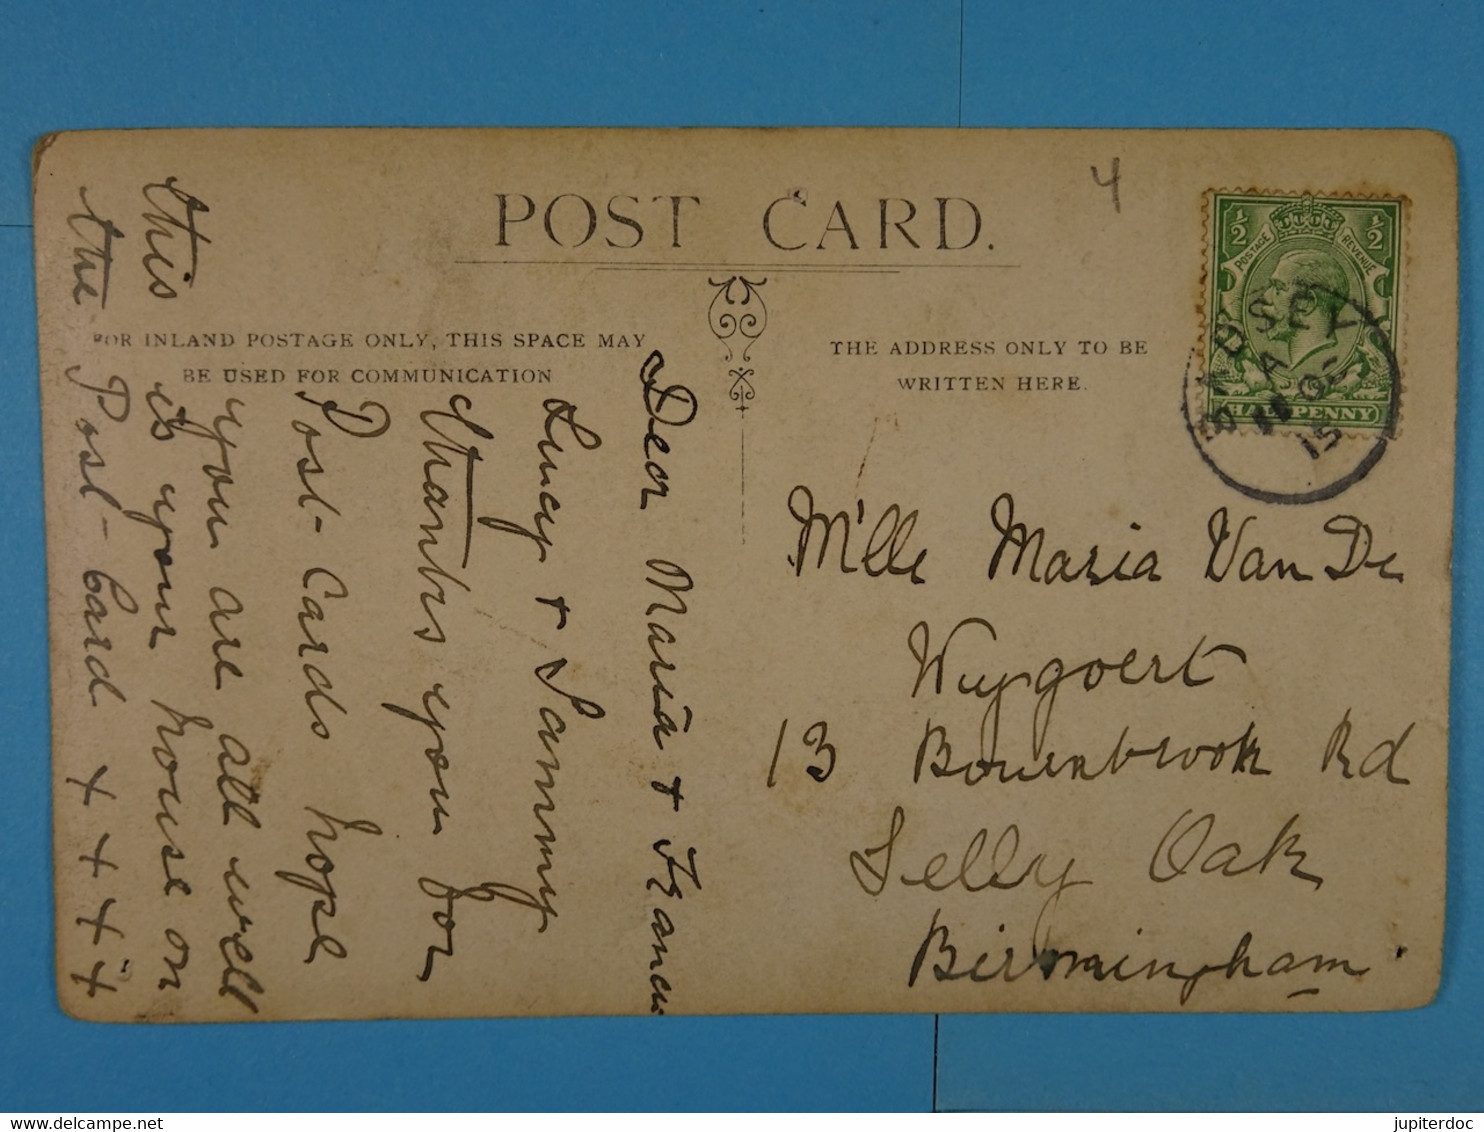 POST CARD.
4
FOR INLAND POSTAGE ONLY, THIS SPACE MAY
BE USED FOR COMMUNICATION
THE ADDRESS ONLY TO BE
WRITTEN HERE.
½ ½
POSTAGE REVENUE
HALFPENNY
A
15
Dear Maria + Francis
Lucy + Sammy
thanks you for
Post-Cards hope
you are all well
is your house on
the Post-Card x x x x
this
M'lle Maria Van De
Wuygoert
13 Bournbrook Rd
Selly Oak
Birmingham
www.delcampe.net
jupiterdoc